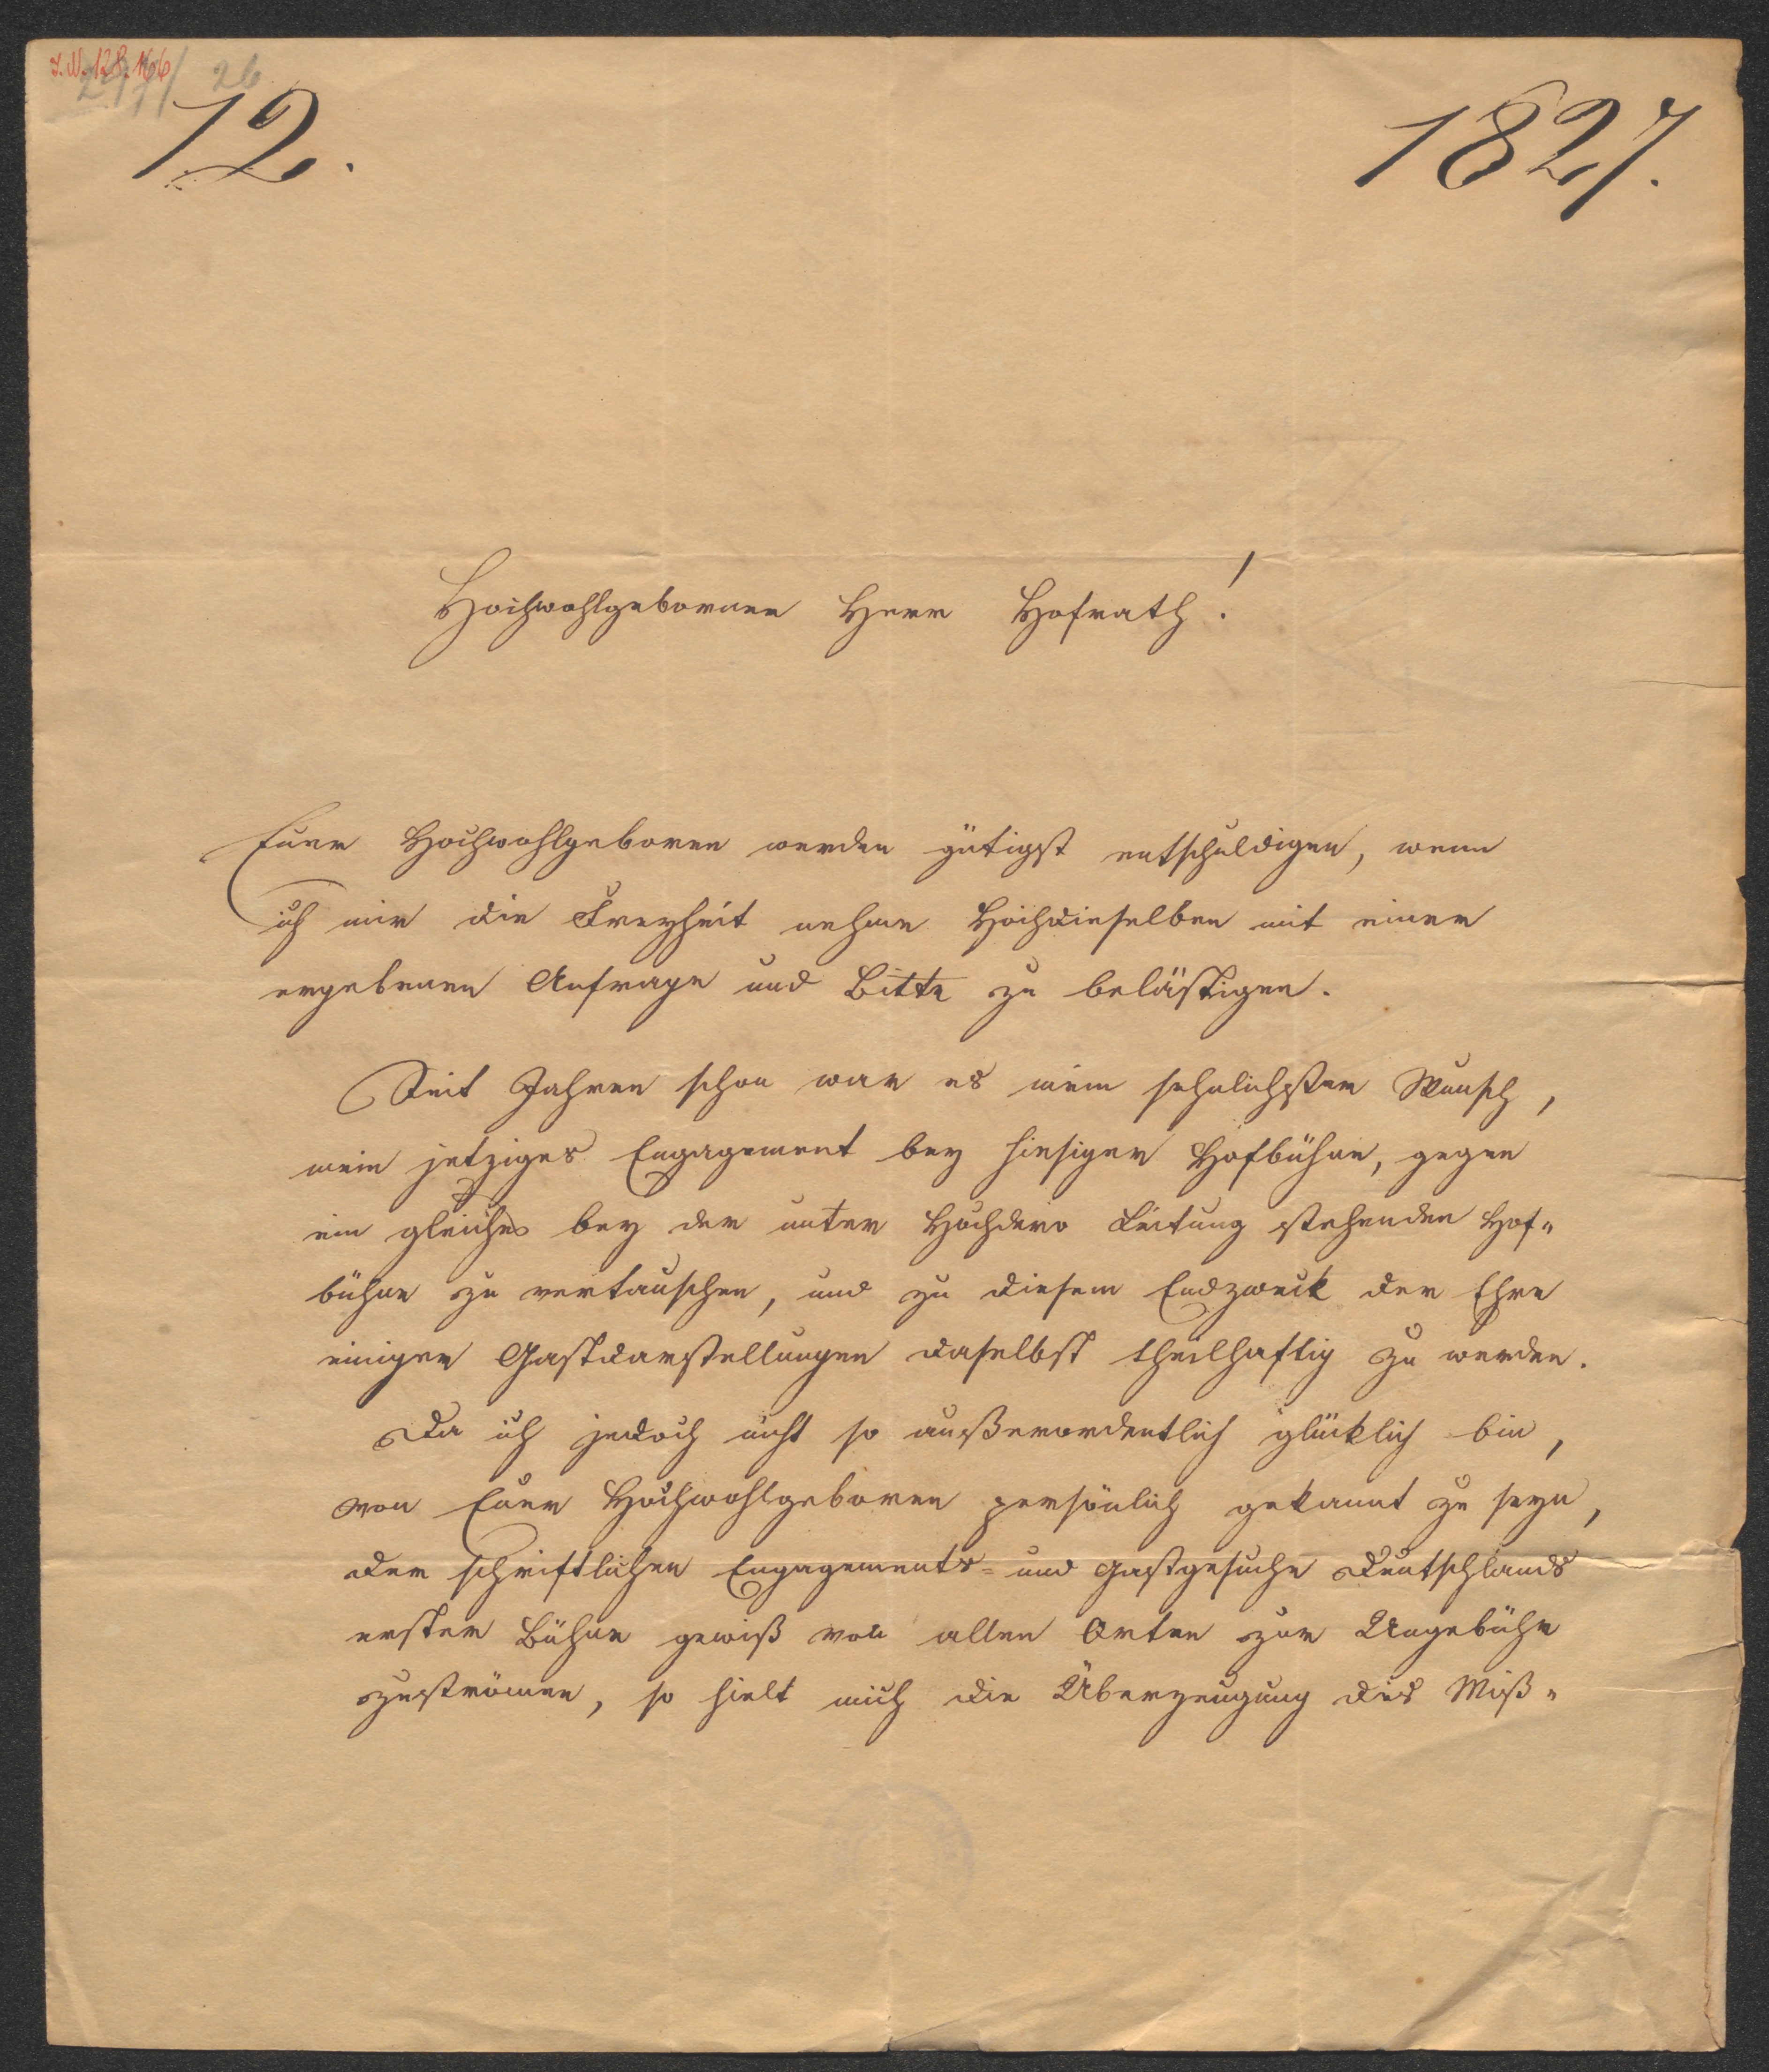 I.N. 128.166
26
12.
1827.
Hochwohlgeborner Herr Hofrath!
Euer Hochwohlgeboren werden gütigst entschuldigen, wenn
ich mir die Freyheit nehme Hochdieselben mit einer
ergebenen Anfrage und Bitte zu belästigen.
Seit Jahren schon war es mein sehnlichster Wunsch,
mein jetziges Engagement bey hiesiger Hofbühne, gegen
ein gleiches bey der unter Hochdero Leitung stehenden Hof„
bühne zu vertauschen, und zu diesem Endzweck der Ehre
einiger Gastdarstellungen daselbst theilhaftig zu werden.
Da ich jedoch nicht so außerordentlich glücklich bin,
von Euer Hochwohlgeboren persönlich gekannt zu seyn,
der schriftlichen Engagements- und Gastgesuche Deutschlands
erster Bühne gewiß von allen Orten zur Ungebühr
zuströmen, so hielt mich die Überzeugung des Miß„